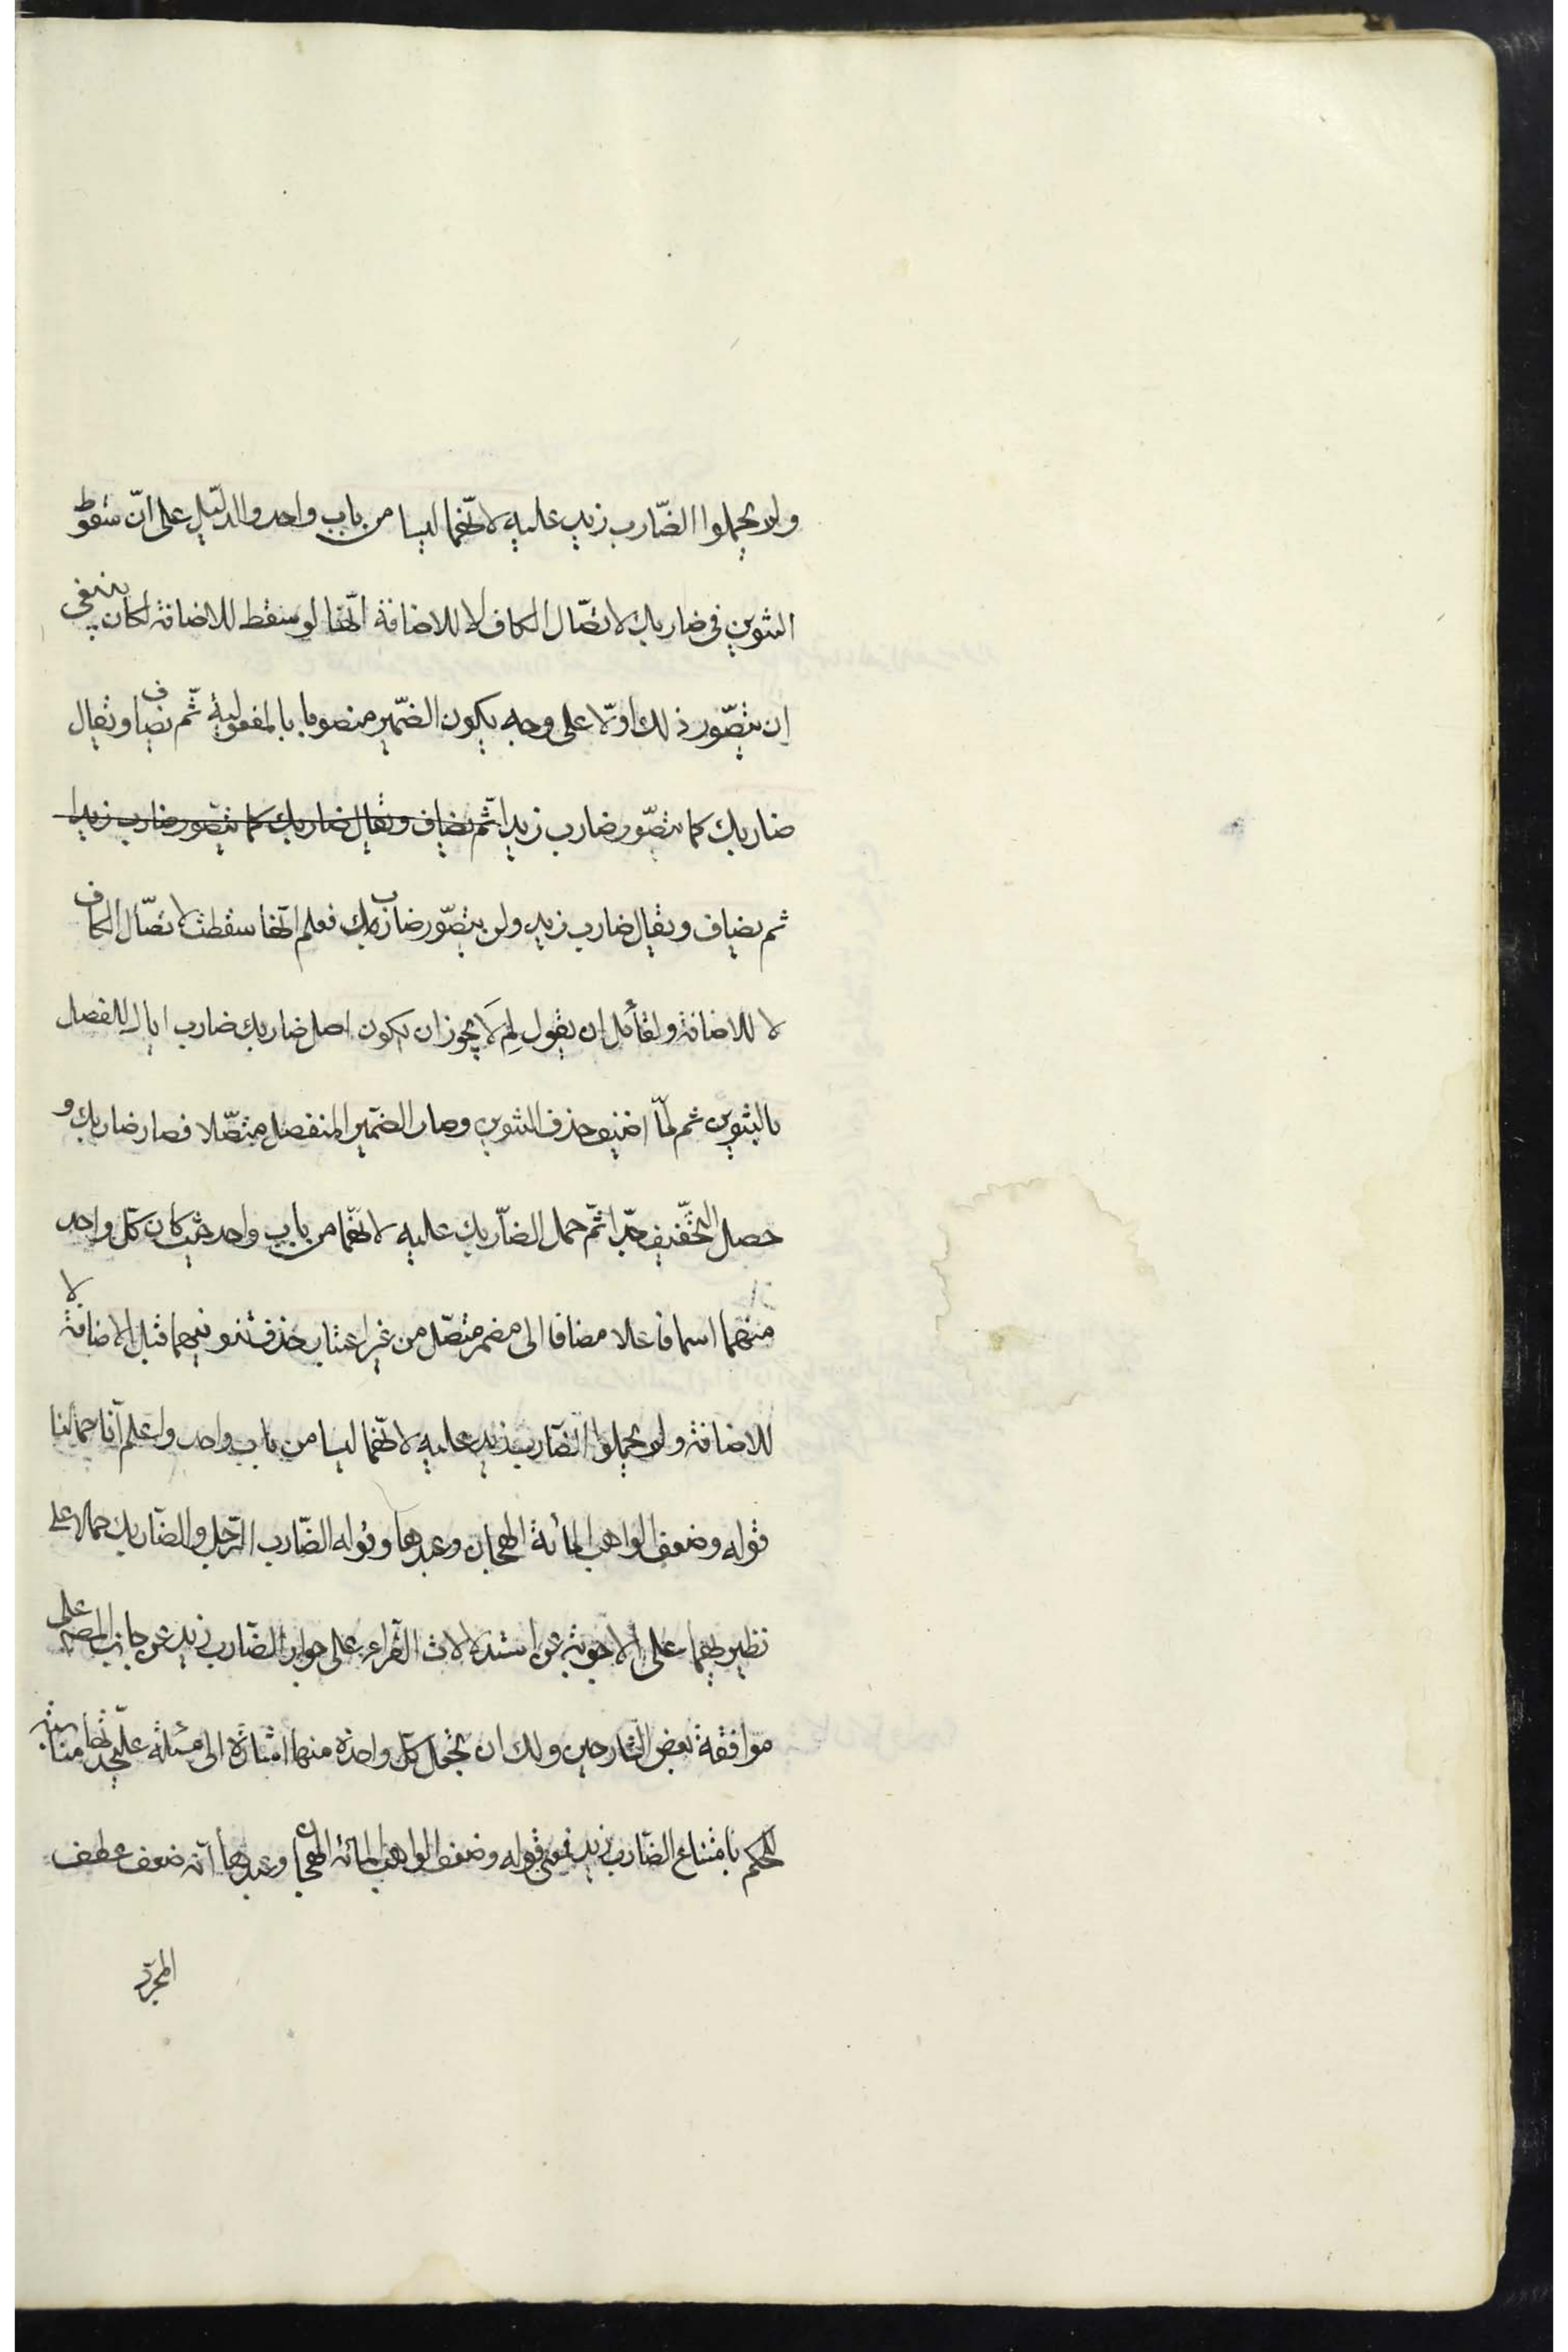 ولم يحملوا الضّارب زيد عليه لانّهما ليسا من باب واحد والدّليل على انّ سقوط
التنوين فى ضاربك لاتّصال الكاف لا للاضافة انّها لو سقط للاضافة لكان ينبغى
ان يتصّور ذلك اولّا على وجه يكون الضّمير منصوبا بالمفعولية ثّم يضاف ويقال
ضاربك كما يتصّور ضارب زيدا ثّم يضاف ويقال ضاربك كما يتصّور ضارب زيدا
ثم يضاف ويقال ضارب زيد ولن يتصّور ضاربك فعلم انّها سقطت لاتصّال الكاف
لا للاضافة ولقائل ان يقول لِمَ لَا يجوز ان يكون اصل ضاربك ضارب اياك للفصل
بالتنوين ثم لمّا اضيف حذف التنوين وصار الضمّير المنفصل متصّلا فصار ضاربك و
حصل التخّفيف جّدا ثّم حمل الضاّربك عليه لانّهما من باب واحد حيث كان كّل واحد
منهما اسما فاعلا مضافا الى مضمر متصّل من غير اعتبار حذف تنوينهما قبل الاضافة لا
للاضافة ولم يحملوا الضّارب زيد عليه لانّهما ليسا من باب واحد واعلم انّا حملنا
قوله وضعف الواهب المائة الهجان وعبدها وقوله الضّارب الرّجل والضّاربك حملا على
نظيرهما على الاجوبة عن استدلالات الفّراء على جواز الضّارب زيد عن جانب المصّ على
موافقة بعض الشّارحين ولك ان تجعل كّل واحدة منهما اشارة الى مسئلة علىحدتها مناسبة
للحكم بامتناع الضّارب زيد فمعنى قوله وضعف الواهب المائة الهجان وعبدها انّه ضعف عطف
المجرّد